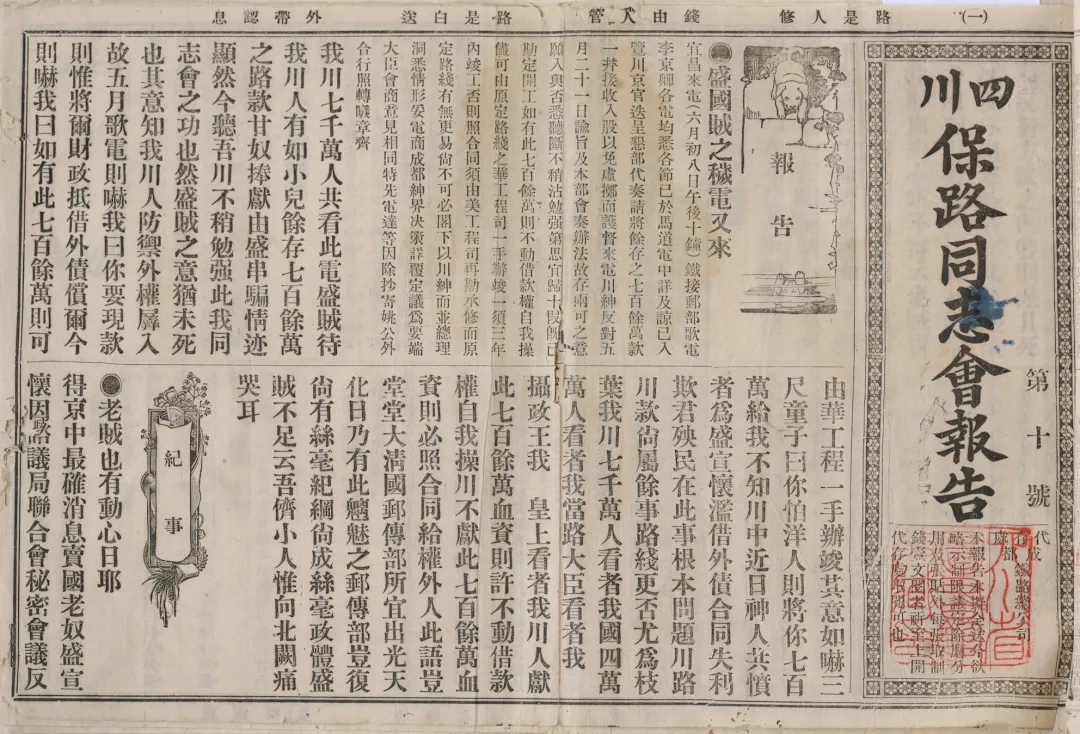 (一)
路是人修
錢由人管
路是白送
外帶認息
四川
保路同志會報告
第十號
報告
●盛國賊之穢電又來
宜昌來電(六月初八日午後十鐘)鐵接郵部歌電
李京卿各電均悉各節已於馬道電中詳及諒已入
覽川京官迭呈懇部代奏請將餘存之七百餘萬款
一律接收入股以免虛擲而護督來電川紳反對五
月二十一日諭旨及本部會奏辦法故存兩可之意
願入與否悉聽斷不稍沾勉强第思宜歸十段既已
勘定開工如有此七百餘萬則不動借款權自我操
儘可由原定路綫之華工程司一手辦竣一須三年
內竣工否則照合同須由美工程司再勘承修而原
定路綫有無更易尙不可必閣下以川紳而並總理
洞悉情形妥電商成都紳界決策詳覆定議爲要端
大臣會商意見相同特先電達等因除抄寄姚公外
合行照轉晠章齊
我川七千萬人共看此電盛賊待
我川人有如小兒餘存七百餘萬
之路款甘奴捧獻由盛串騙情迹
顯然今聽吾川不稍勉强此我同
志會之功也然盛賊之意猶未死
也其意知我川人防禦外權羼入
故五月歌電則嚇我曰你要現款
則惟將爾財政抵借外債償爾今
則嚇我曰如有此七百餘萬則可
由華工程一手辦竣其意如嚇三
尺童子曰你怕洋人則將你七百
萬給我不知川中近日神人共憤
者爲盛宣懷濫借外債合同失利
欺君殃民在此事根本問題川路
川款尙屬餘事路綫更否尤爲枝
葉我川七千萬人看者我國四萬
萬人看者我當路大臣看者我
攝政王我 皇上看者我川人獻
此七百餘萬血資則許不動借款
權自我操川不獻此七百餘萬血
資則必照合同給權外人此語豈
堂堂大淸國郵傳部所宜出光天
化日乃有此魑魅之郵傳部豈復
尙有絲毫紀綱尙成絲毫政體盛
賊不足云吾儕小人惟向北闕痛
哭耳
紀事
●老賊也有動心日耶
得京中最確消息賣國老奴盛宣
懷因諮議局聯合會秘密會議反